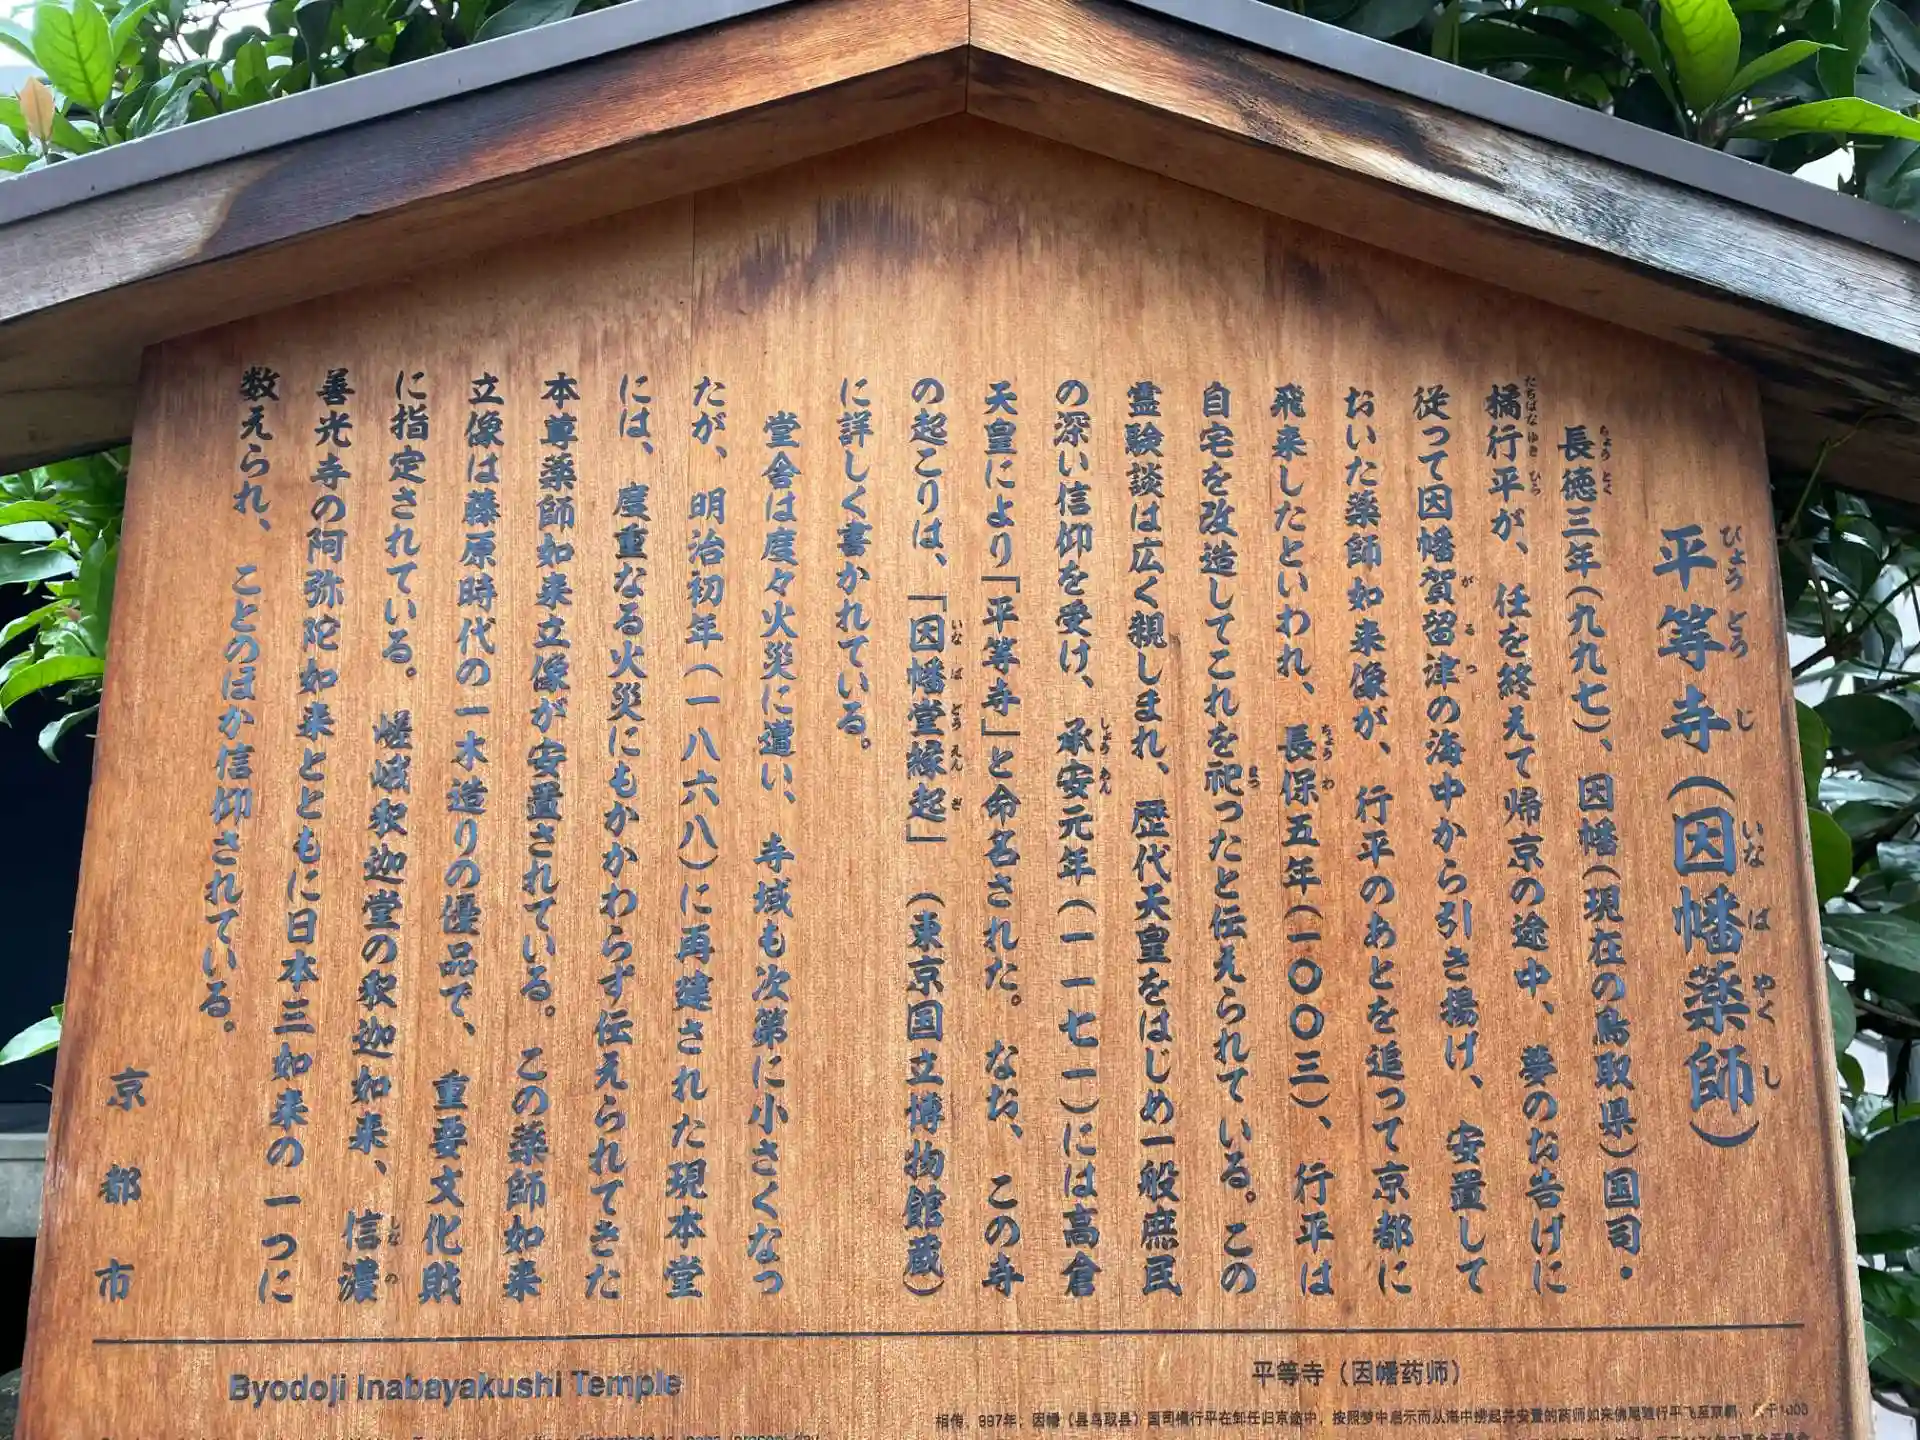 平等寺(因幡薬師)
長徳三年(九九七)、因幡(現在の鳥取県)国司・
橘行平が、任を終えて帰京の途中、夢のお告げに
従って因幡賀留津の海中から引き揚げ、安置して
おいた薬師如来像が、行平のあとを追って京都に
飛来したといわれ、長保五年(一〇〇三)、行平は
自宅を改造してこれを祀ったと伝えられている。この
霊験談は広く親しまれ、歴代天皇をはじめ一般庶民
の深い信仰を受け、承安元年(一一七一)には高倉
天皇により「平等寺」と命名された。なお、この寺
の起こりは、「因幡堂縁起」(東京国立博物館蔵)
に詳しく書かれている。
堂舎は度々火災に遭い、寺域も次第に小さくなっ
たが、明治初年(一八六八)に再建された現本堂
には、度重なる火災にもかかわらず伝えられてきた
本尊薬師如来立像が安置されている。この薬師如来
立像は藤原時代の一木造りの優品で、重要文化財
に指定されている。嵯峨釈迦堂の釈迦如来、信濃
善光寺の阿弥陀如来とともに日本三如来の一つに
数えられ、ことのほか信仰されている。
京都市
Byodoji Inabayakushi Temple
平等寺（因幡药师）
相传，997年，因幡（县鸟取县）国司橘行平在卸任归京途中，按照梦中启示而从海中捞起并安置的药师如来佛尾随行平飞至京都，于1003